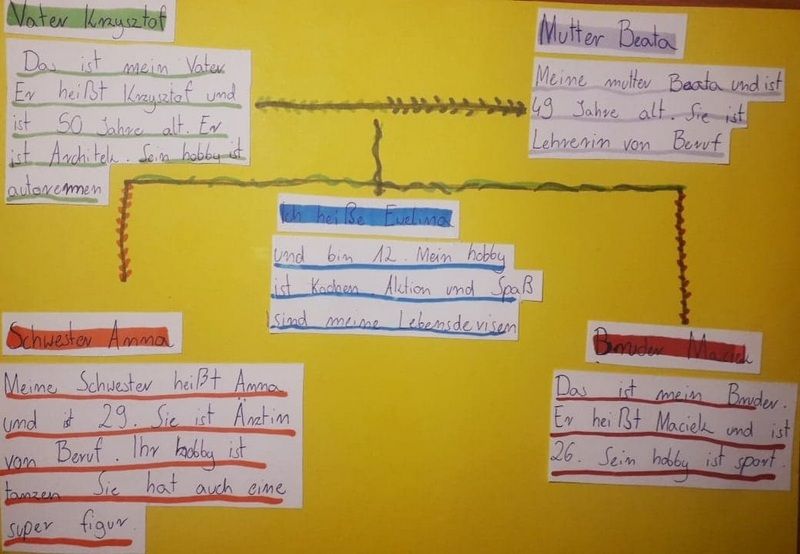 Vater Krzysztof
Das ist mein Vater
Er heißt Krzysztof und
ist 50 Jahre alt. Er
ist Architek. Sein hobby ist
autorennen
Mutter Beata
Meine mutter Beata und ist
49 Jahre alt. Sie ist
Lehrerin von Beruf
Ich heiße Ewelina
und bin 12. Mein hobby
ist Kochen Aktion und Spaß
sind meine Lebensdevisen
Schwester Anna
Meine Schwester heißt Anna
und ist 29. Sie ist Ärztin
von Beruf. Ihr hobby ist
tanzen Sie hat auch eine
super figur.
Bruder Maciek
Das ist mein Bruder.
Er heißt Maciek und ist
26. Sein hobby ist sport.